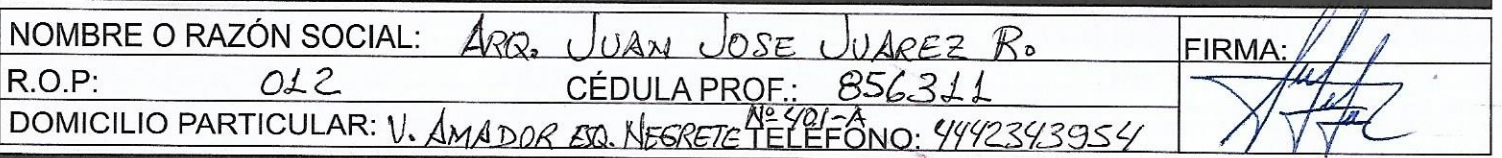 NOMBRE O RAZÓN SOCIAL: ARQ. JUAN JOSE JUAREZ R. FIRMA:
R.O.P: 012 CÉDULA PROF.: 856311
DOMICILIO PARTICULAR: V. AMADOR ESQ. NEGRETE Nº 401-A TELÉFONO: 4442343954